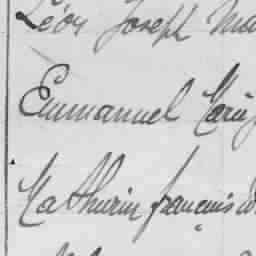 Léon Joseph Ma
Emmanuel Marie
Mathurin françois